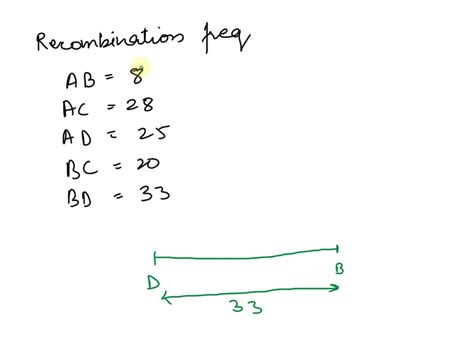 Recombination freq
AB = 8
AC = 28
AD = 25
BC = 20
BD = 33
D B
33